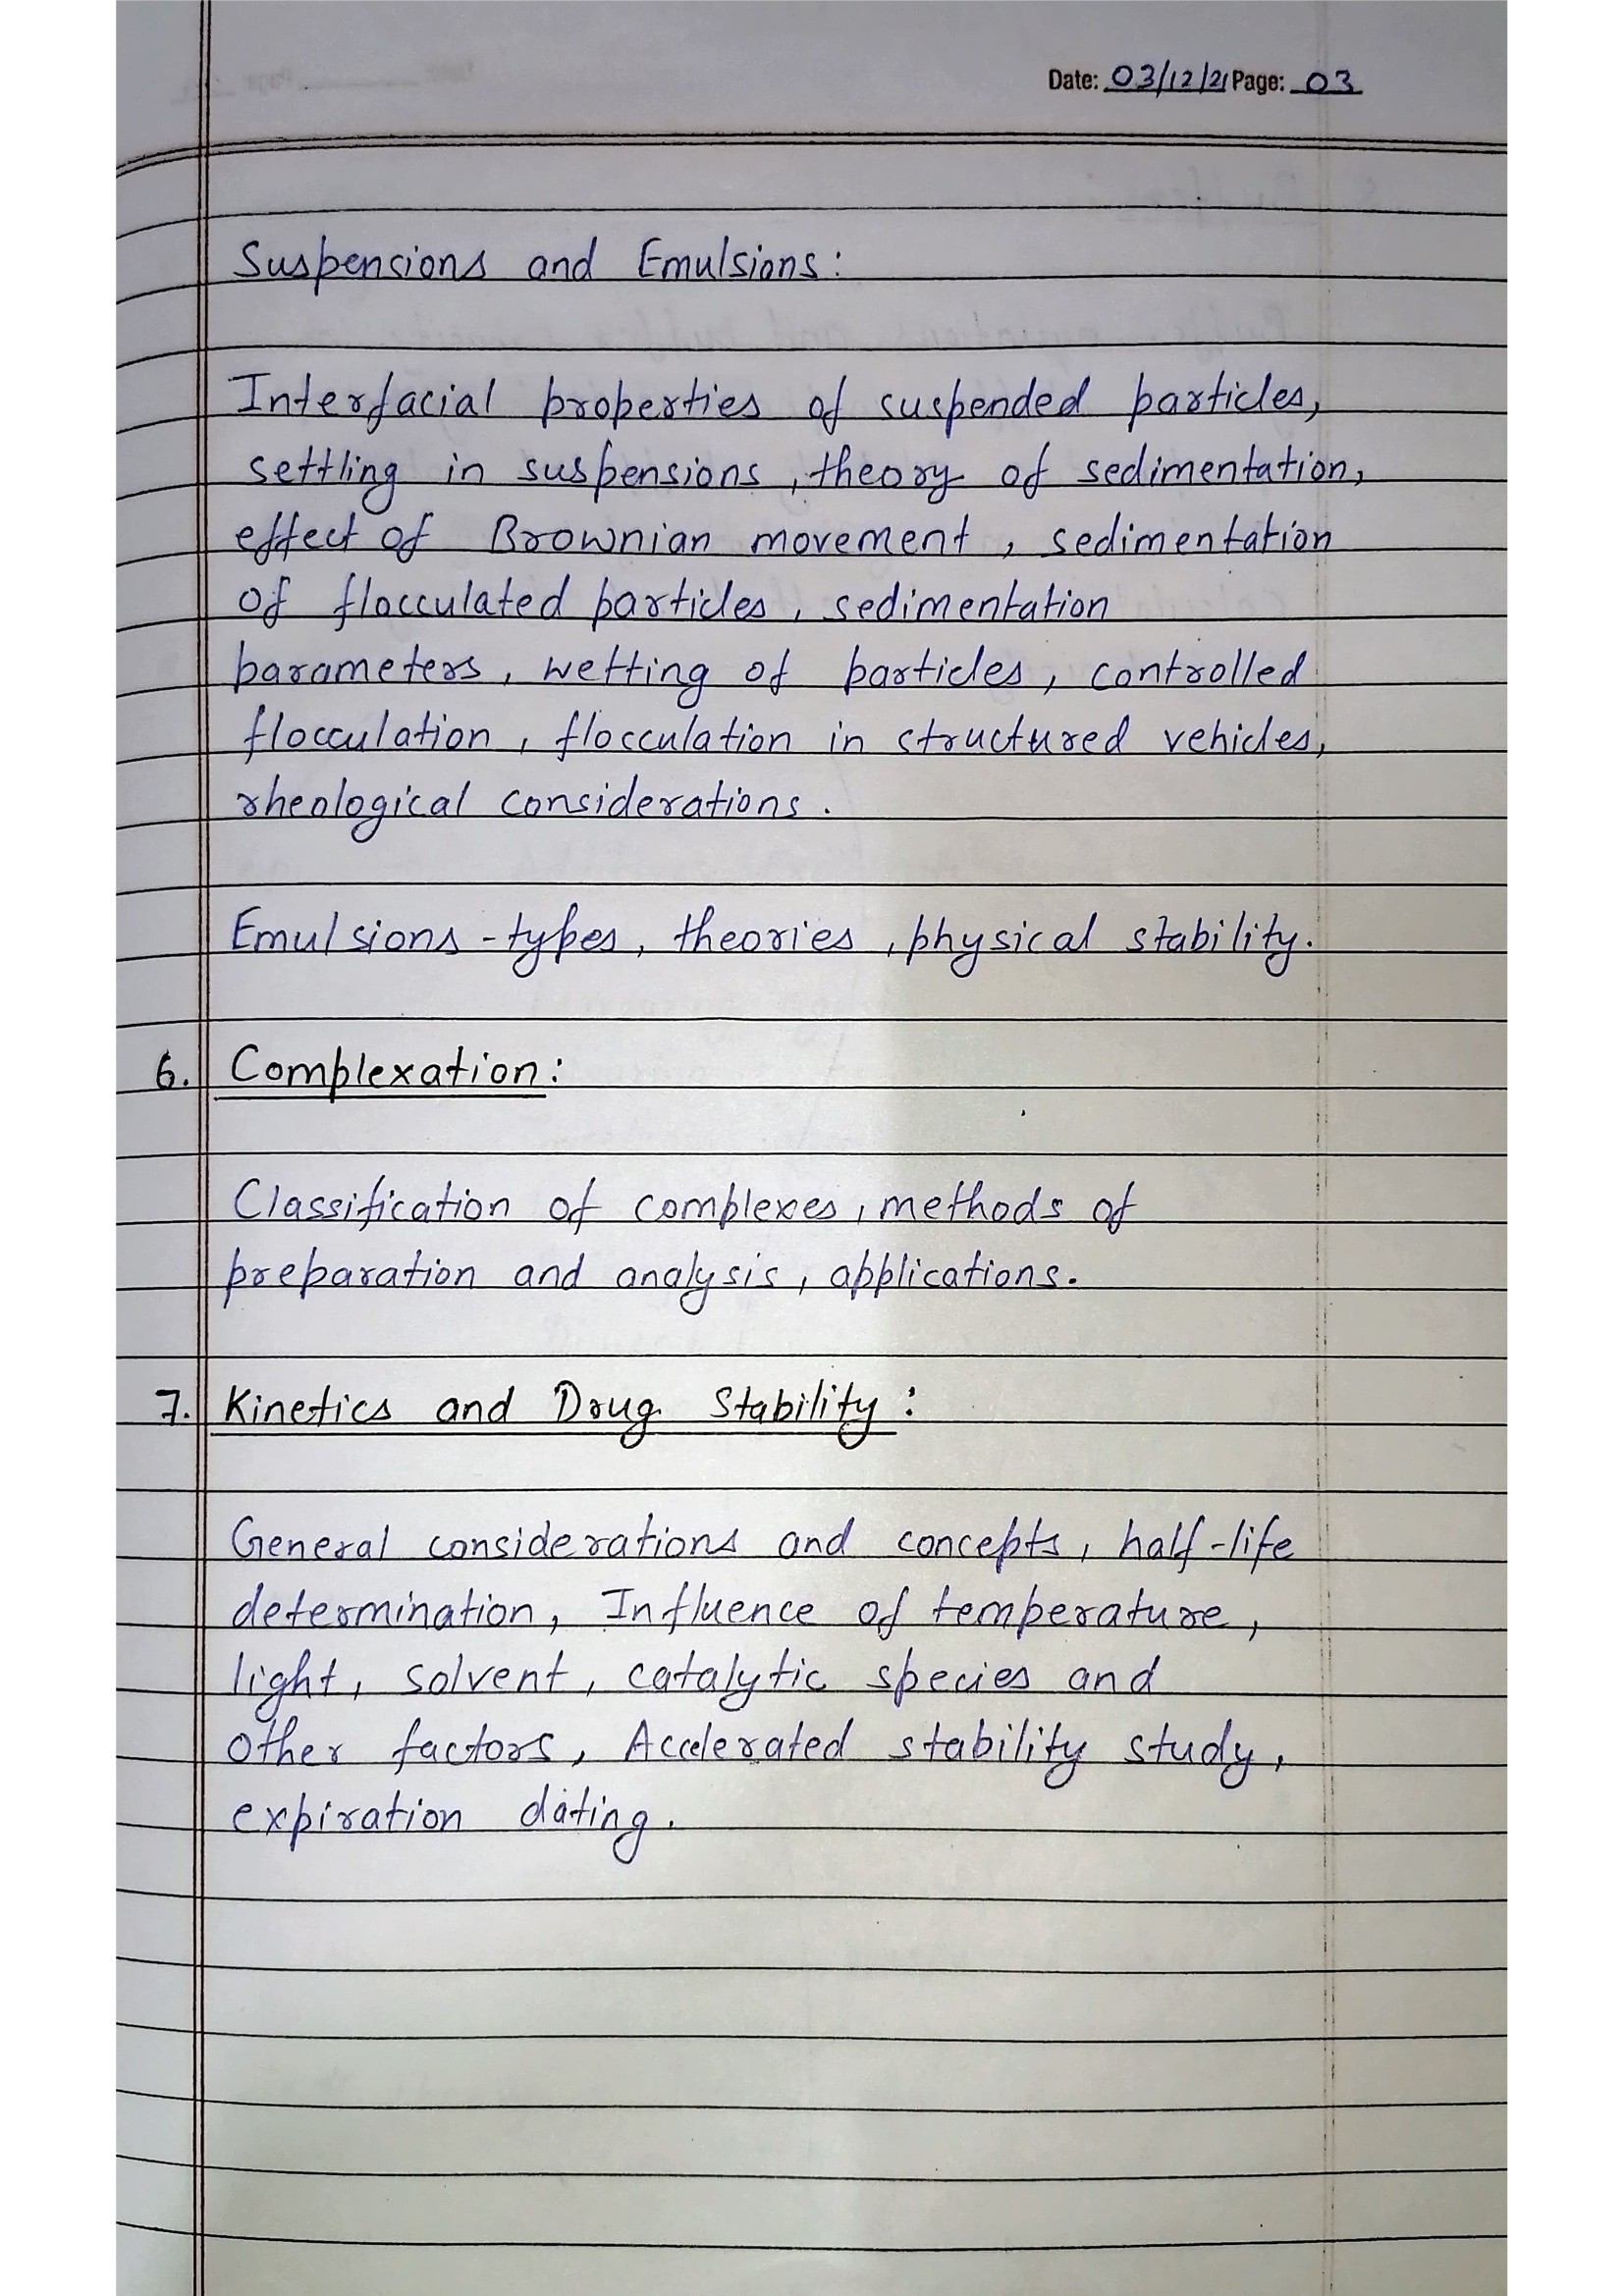 Date: 03/12/21 Page: 03
Suspensions and Emulsions:
Interfacial properties of suspended particles,
settling in suspensions, theory of sedimentation,
effect of Brownian movement, sedimentation
of flocculated particles, sedimentation
parameters, wetting of particles, controlled
flocculation, flocculation in structured vehicles,
rheological considerations.
Emulsions - types, theories, physical stability.
6. Complexation:
Classification of complexes, methods of
preparation and analysis, applications.
7. Kinetics and Drug Stability:
General considerations and concepts, half-life
determination, Influence of temperature,
light, solvent, catalytic species and
other factors, Accelerated stability study,
expiration dating.